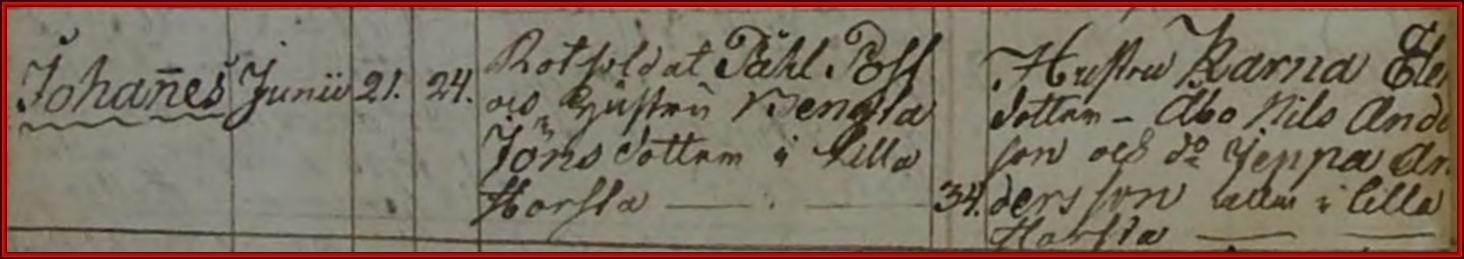 Johan̄es Junii 21. 24.
Rotsoldat Påhl Poss
och Hustru Bengta
Jöns dotter i Lilla
Horsta
34.
Hustru Karna Ele
dotter - Åbo Nils Ande
son och do Jeppa An
dersson i Lilla
Horsta